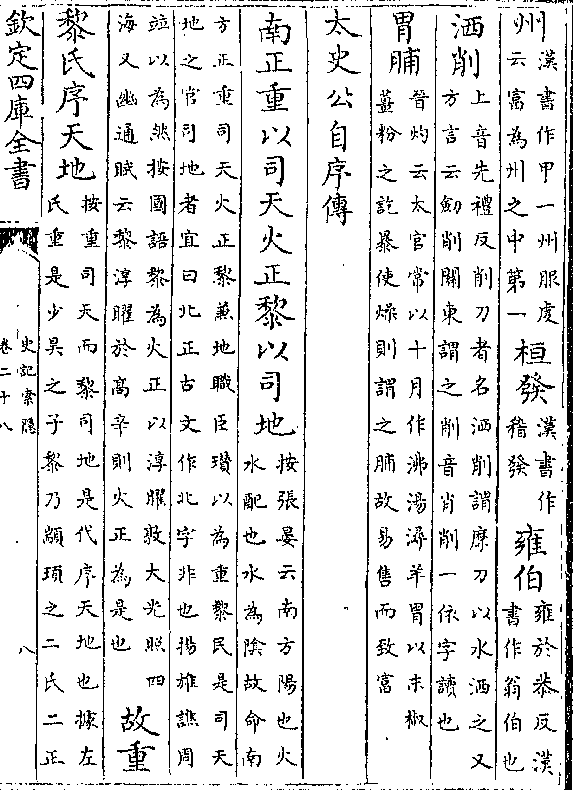 州漢書作甲一州服虔云富為州之中第一桓發漢書作稽發雍伯雍於恭反漢書作翁伯也
洒削上音先禮反削刀者名洒削謂摩刀以水洒之又方言云劒削關東謂之削音肖削一依字讀也
胃脯晉灼云太官常以十月作沸湯燖羊胃以末椒薑粉之訖暴使燥則謂之脯故易售而致富
太史公自序傳
南正重以司天火正黎以司地按張晏云南方陽也火水配也水為陰故命南
方正重司天火正黎兼地職臣瓚以為重黎民是司天地之官司地者宜曰北正古文作北字非也揚雄譙周
竝以為然按國語黎為火正以淳曜敦大光照四海又幽通賦云黎淳曜於高辛則火正為是也故重
黎氏序天地按重司天而黎司地是代序天地也據左氏重是少昊之子黎乃顓頊之二氏二正
欽定四庫全書
史記索隱
卷二十八
八